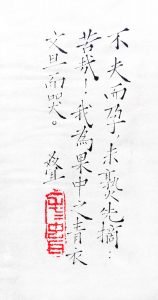 不夫而孕，未熟先摘：
苦哉！我為果中之青衣
文旦而哭。